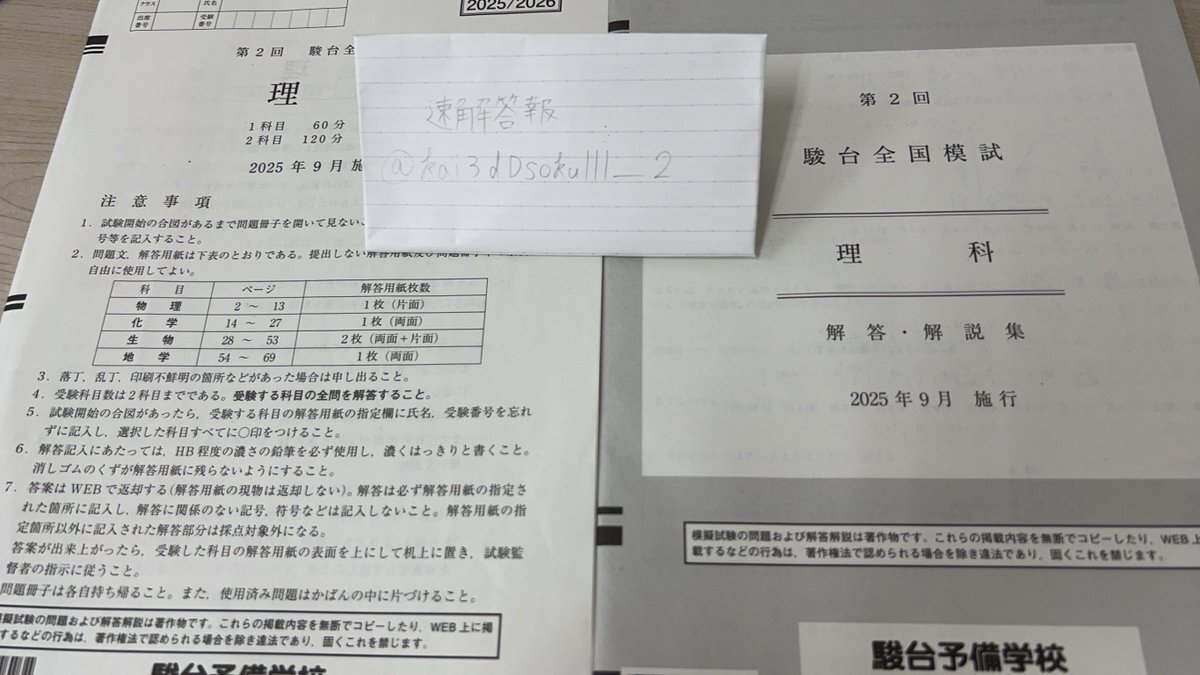 クラス
氏名
出席番号
受験番号
2025/2026
第2回 駿台全
理
1科目 60分
2科目 120分
2025年9月 施
注意事項
1. 試験開始の合図があるまで問題冊子を開いて見ない
号等を記入すること。
2. 問題文, 解答用紙は下表のとおりである。提出しない解答用紙及び問題冊子
自由に使用してよい。
科目 ページ 解答用紙枚数
物理 2〜13 1枚(片面)
化学 14〜27 1枚(両面)
生物 28〜53 2枚(両面+片面)
地学 54〜69 1枚(両面)
3. 落丁, 乱丁, 印刷不鮮明の箇所などがあった場合は申し出ること。
4. 受験科目数は2科目までである。受験する科目の全問を解答すること。
5. 試験開始の合図があったら, 受験する科目の解答用紙の指定欄に氏名, 受験番号を忘れ
ずに記入し, 選択した科目すべてに○印をつけること。
6. 解答記入にあたっては, HB程度の濃さの鉛筆を必ず使用し, 濃くはっきりと書くこと。
消しゴムのくずが解答用紙に残らないようにすること。
7. 答案はWEBで返却する(解答用紙の現物は返却しない)。解答は必ず解答用紙の指定さ
れた箇所に記入し, 解答に関係のない記号, 符号などは記入しないこと。解答用紙の指
定箇所以外に記入された解答部分は採点対象外になる。
答案が出来上がったら, 受験した科目の解答用紙の表面を上にして机上に置き, 試験監
督者の指示に従うこと。
問題冊子は各自持ち帰ること。また, 使用済み問題はかばんの中に片づけること。
模擬試験の問題および解答解説は著作物です。これらの掲載内容を無断でコピーしたり、WEB上に掲
するなどの行為は、著作権法で認められる場合を除き違法であり、固くこれを禁じます。
駿台予備学校
速解答報
@kai3dDsokulll_2
第2回
駿台全国模試
理科
解答・解説集
2025年9月 施行
模擬試験の問題および解答解説は著作物です。これらの掲載内容を無断でコピーしたり、WEB上
載するなどの行為は、著作権法で認められる場合を除き違法であり、固くこれを禁じます。
駿台予備学校